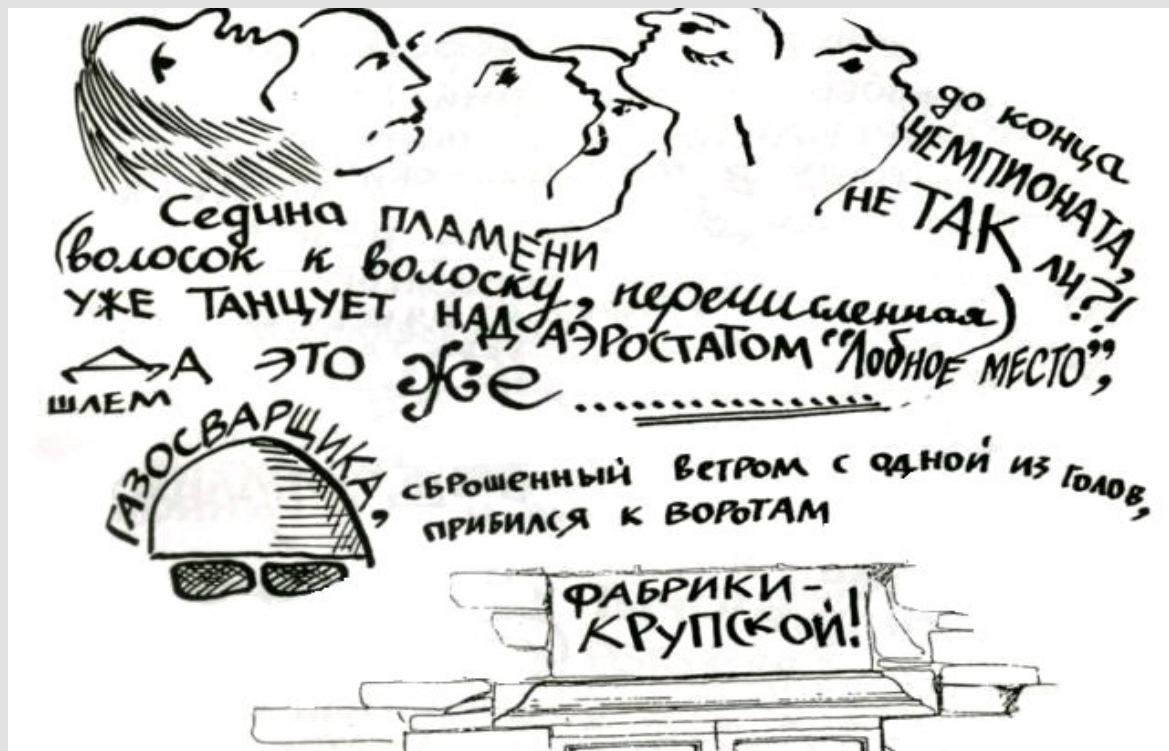 до конца
ЧЕМПИОНАТА,
НЕ ТАК ЛИ?!
Седина ПЛАМЕНИ
(волосок к волоску, перечисленная)
УЖЕ ТАНЦУЕТ НАД АЭРОСТАТОМ "Лобное МЕСТО",
ДА ЭТО Же ....................
ШЛЕМ
ГАЗОСВАРЩИКА,
сброшенный ветром с одной из голов,
ПРИБИЛСЯ К ВОРОТАМ
ФАБРИКИ-
КРУПСКОЙ!